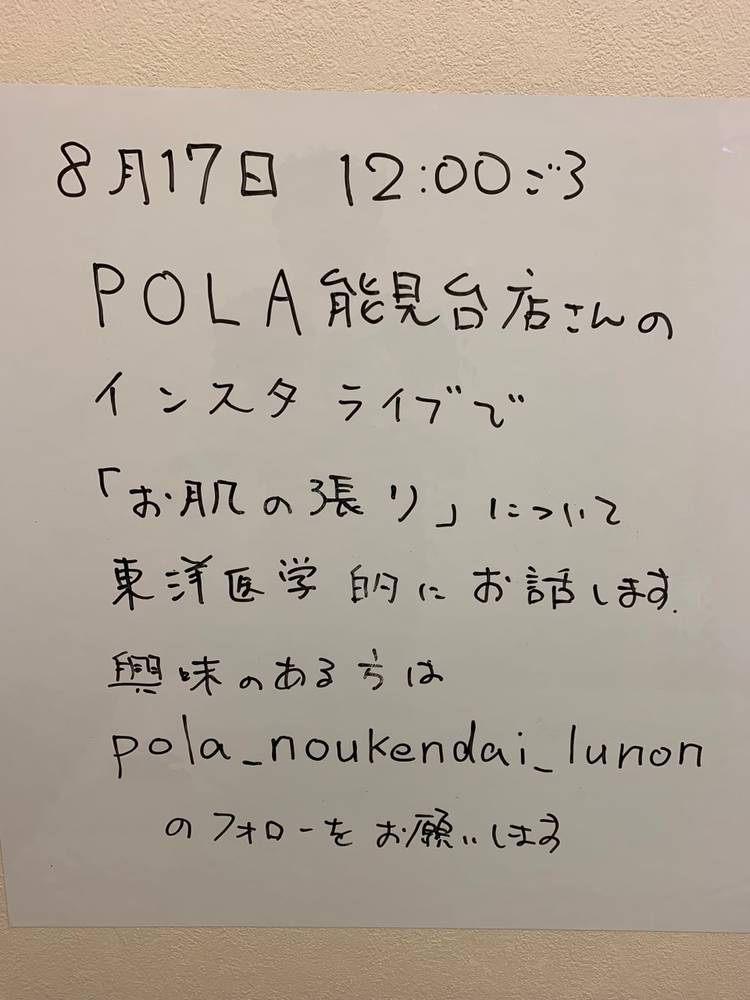 8月17日 12:00ごろ
POLA能見台店さんの
インスタライブで
「お肌の張り」について
東洋医学的にお話します.
興味のある方は
pola_noukendai_lunon
のフォローをお願いします